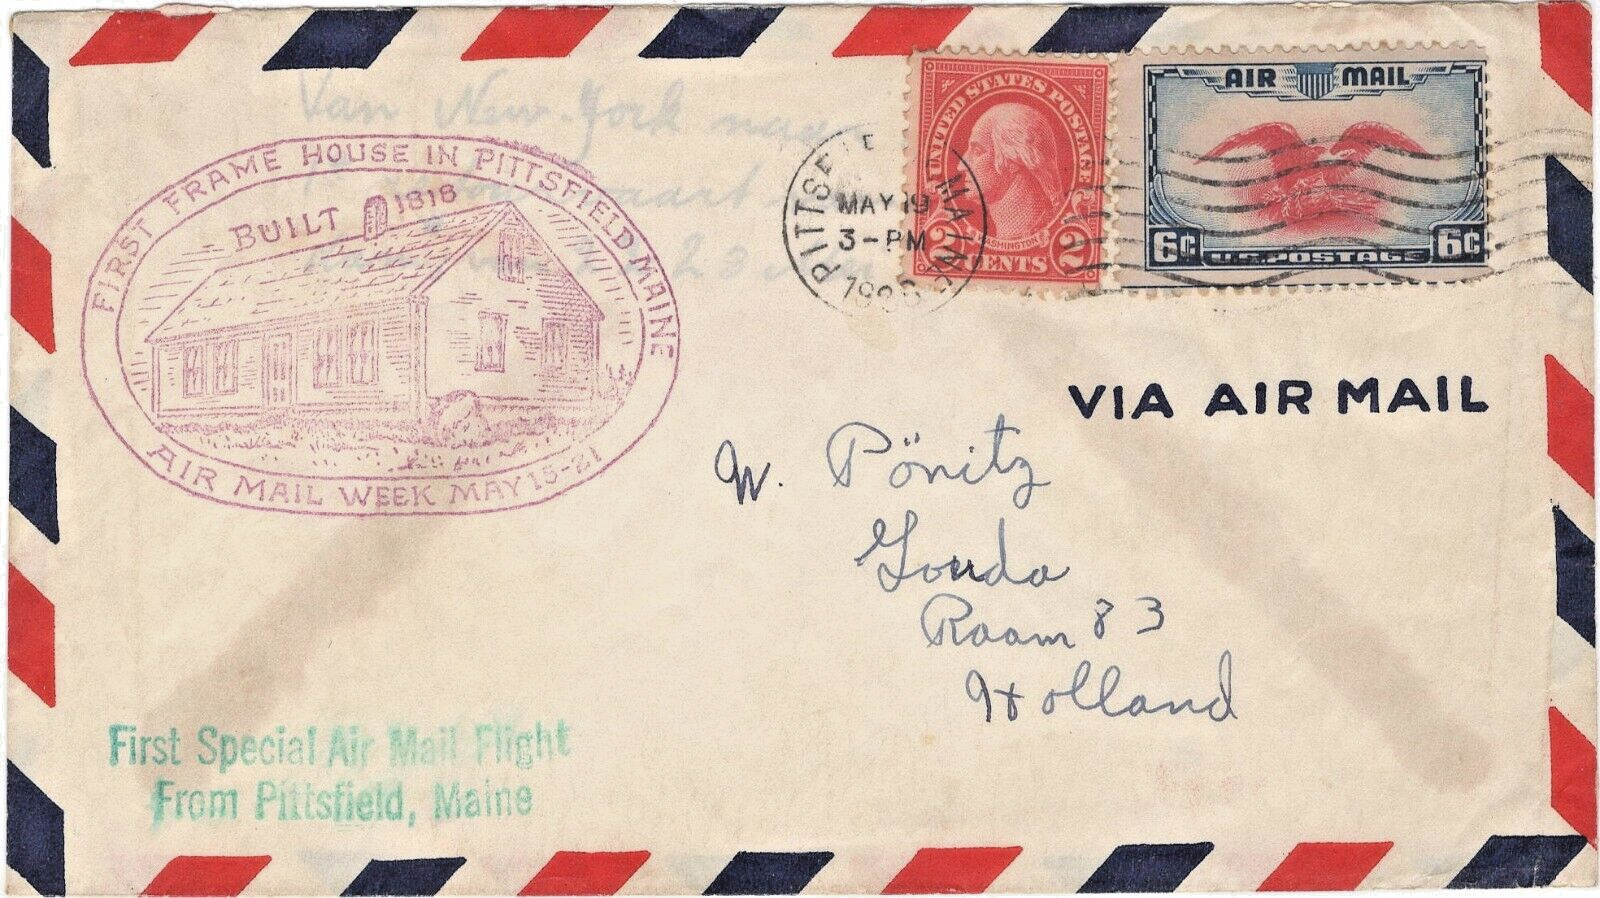 FIRST FRAME HOUSE IN PITTSFIELD, MAINE
BUILT 1818
AIR MAIL WEEK MAY 15-21
Van New-York
PITTSF MAINE
MAY 19
3-PM
UNITED STATES POSTAGE
WASHINGTON
2 CENTS 2
AIR MAIL
6¢ U.S. POSTAGE 6¢
VIA AIR MAIL
W. Pönitz
Gouda
Raam 83
Holland
First Special Air Mail Flight
From Pittsfield, Maine